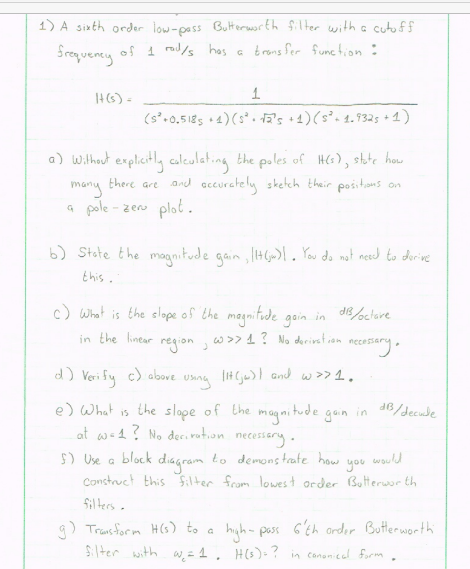 1) A sixth order low-pass Butterworth filter with a cutoff
frequency of 1 rad/s has a transfer function :
H(s) = 1 / (s²+0.518s +1)(s²+√2's +1)(s²+1.932s+1)
a) Without explicitly calculating the poles of H(s), state how
many there are and accurately sketch their positions on
a pole-zero plot.
b) State the magnitude gain, |H(jω)|. You do not need to derive
this.
c) What is the slope of the magnitude gain in dB/octave
in the linear region, ω>>1? No derivation necessary.
d) Verify c) above using |H(jω)| and ω>>1.
e) What is the slope of the magnitude gain in dB/decade
at ω=1? No derivation necessary.
f) Use a block diagram to demonstrate how you would
construct this filter from lowest order Butterworth
filters.
g) Transform H(s) to a high-pass 6'th order Butterworth
filter with ωc=1. H(s)=? in canonical form.